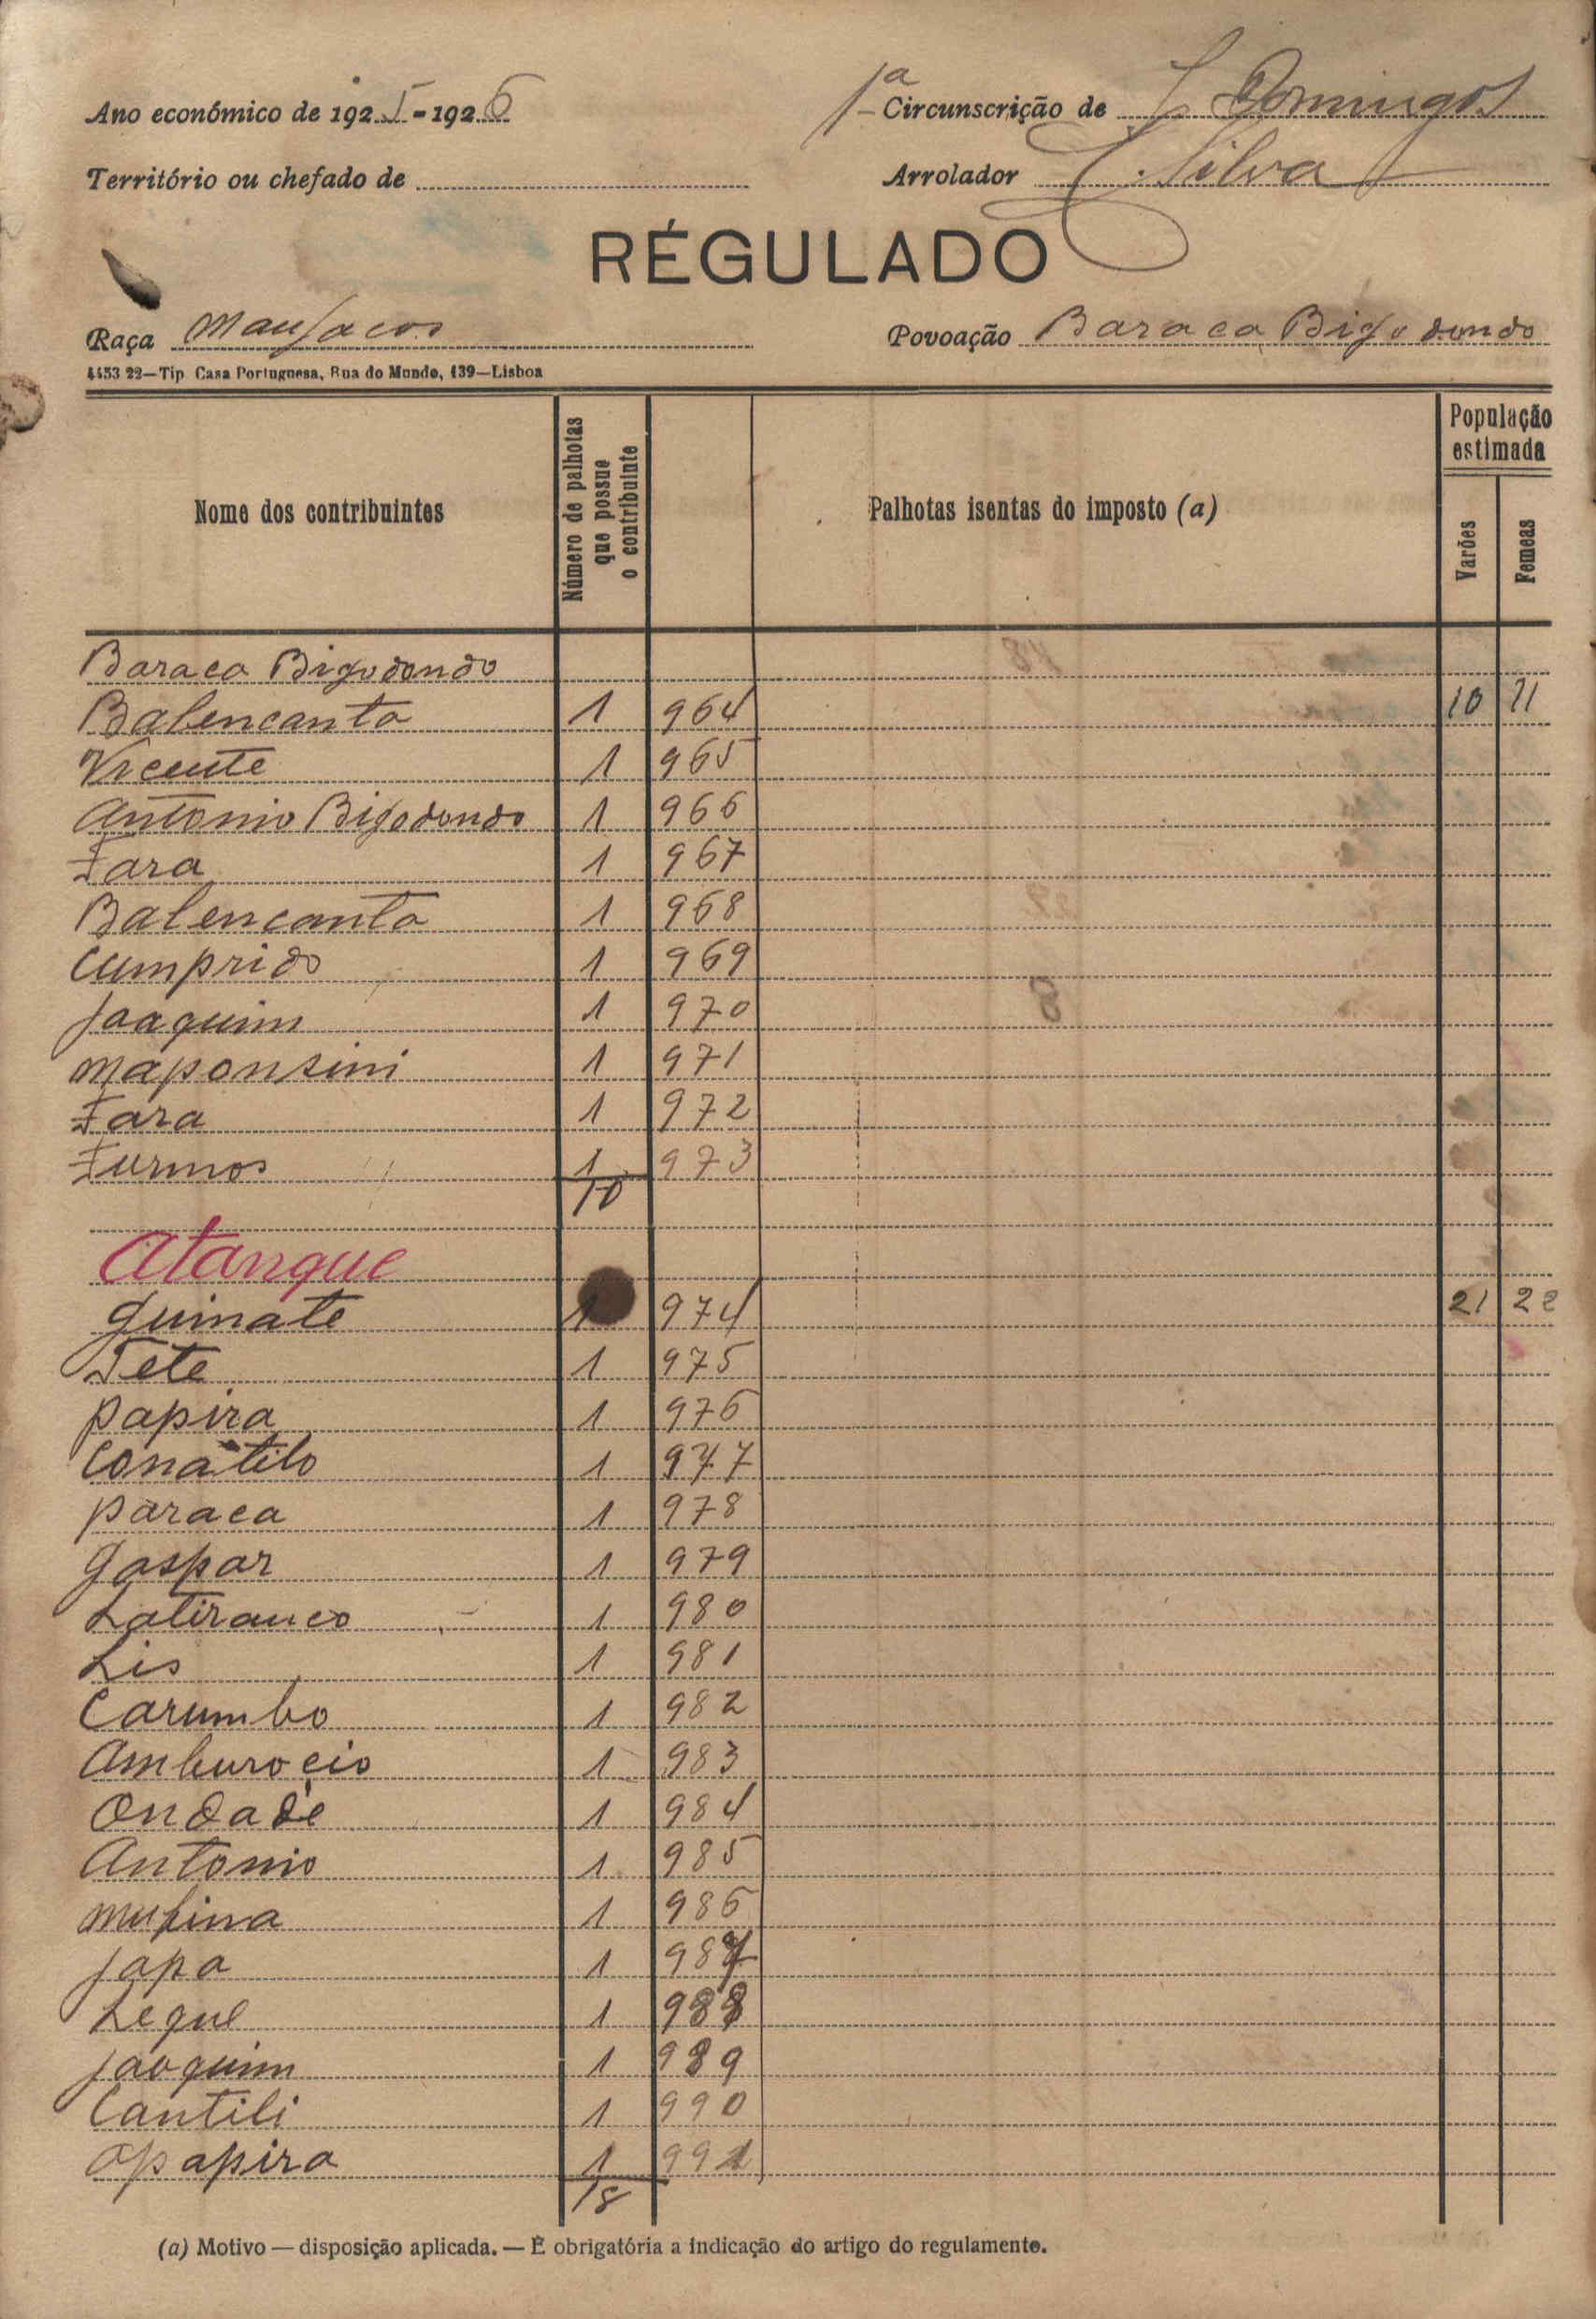 Ano económico de 1925-1926
1ª Circunscrição de S. Domingos
Território ou chefado de
Arrolador Silva
RÉGULADO
Raça Manjacos
Povoação Baraca Bigodondo
4453 22—Tip. Casa Portuguesa, Rua do Mundo, 139—Lisboa
Nome dos contribuintes
Número de palhotas que possue o contribuinte
Palhotas isentas do imposto (a)
População estimada
Varões
Femeas
Baraca Bigodondo
Balencanta 1 964 10 11
Vicente 1 965
Antonio Bigodondo 1 966
Fara 1 967
Balencanta 1 968
Cumprido 1 969
Joaquim 1 970
Maponsini 1 971
Fara 1 972
Furmos 1 973
10
Atanque
Guinate 1 974 21 22
Tete 1 975
Papira 1 976
Conatilo 1 977
Paraca 1 978
Gaspar 1 979
Latiranco 1 980
Lis 1 981
Carumbo 1 982
Amburocio 1 983
Ondade 1 984
Antonio 1 985
Mufina 1 986
Japa 1 987
Leque 1 988
Jaoquim 1 989
Cantili 1 990
Apapira 1 991
18
(a) Motivo — disposição aplicada. — É obrigatória a indicação do artigo do regulamento.